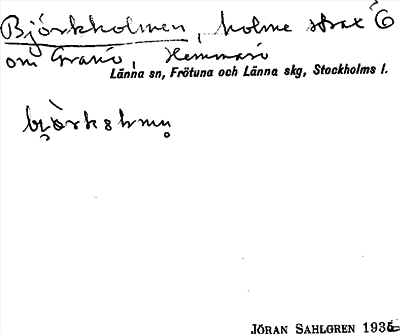 Björkholmen, holme strax Ö
om Granö, Hemmarö
Länna sn, Frötuna och Länna skg, Stockholms l.
JÖRAN SAHLGREN 1935